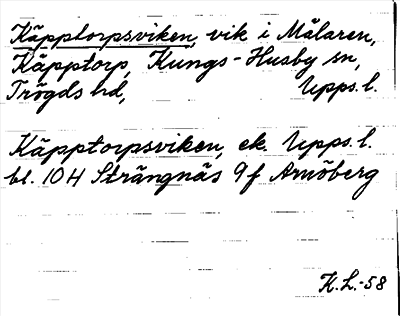 Käpptorpsviken, vik i Mälaren,
Käpptorp, Kungs-Husby sn,
Trögds hd, Upps. l.
Käpptorpsviken, ek. Upps. l.
bl. 10 H Strängnäs 9f Arnöberg
K.L.-58